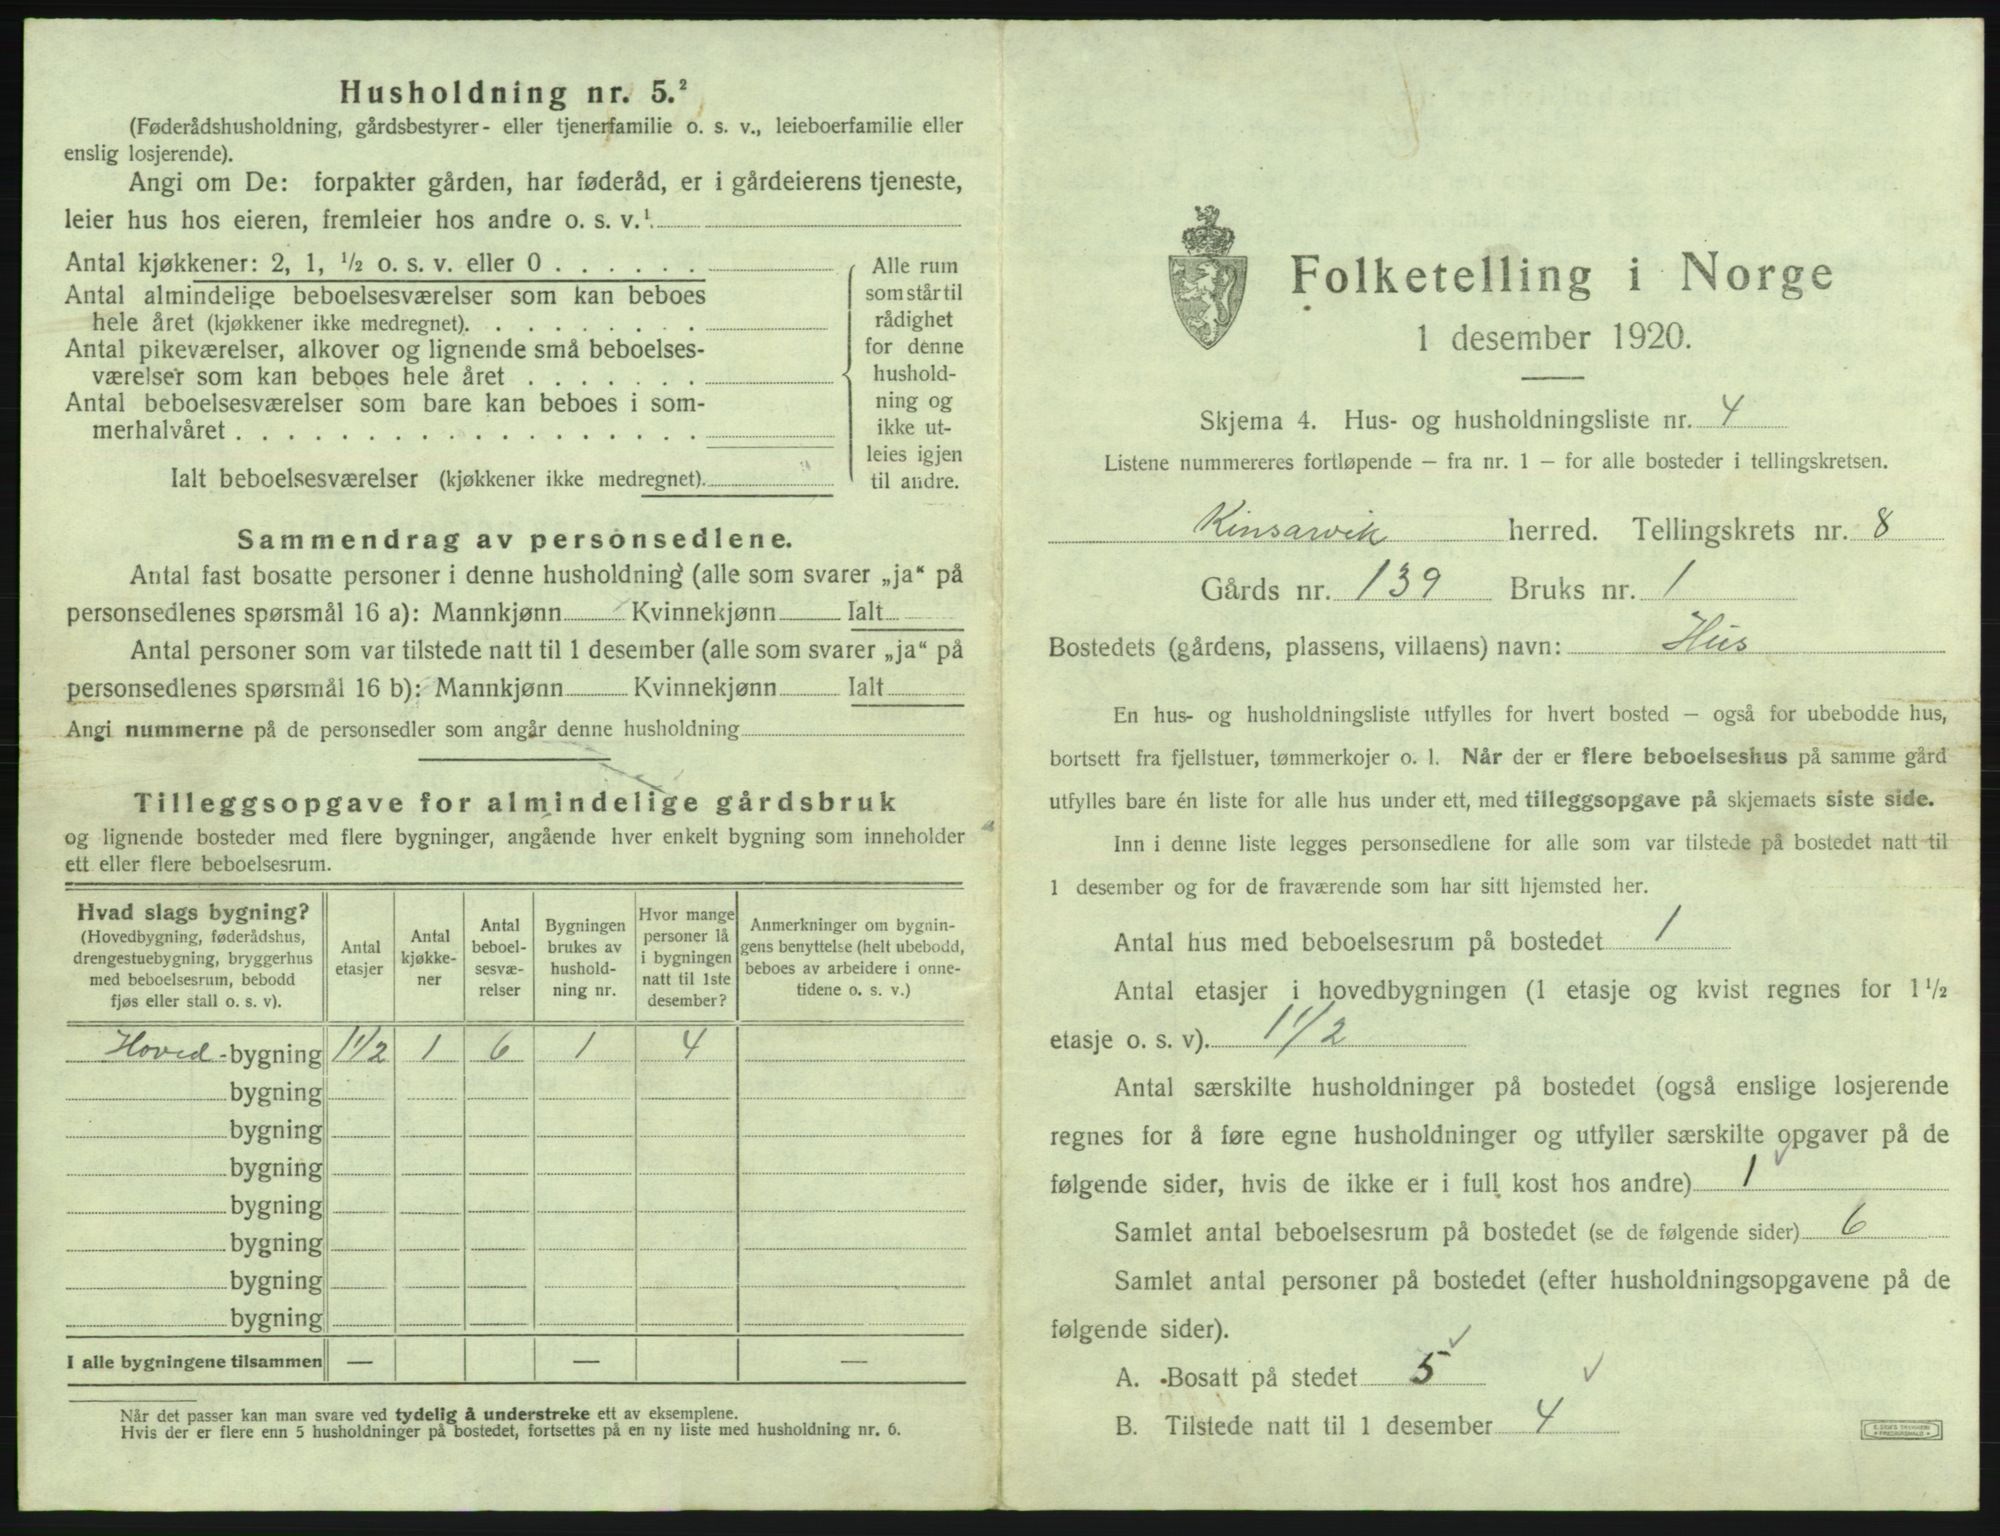 Husholdning nr. 5.²
(Føderådshusholdning, gårdsbestyrer- eller tjenerfamilie o. s. v., leieboerfamilie eller
enslig losjerende).
Angi om De: forpakter gården, har føderåd, er i gårdeierens tjeneste,
leier hus hos eieren, fremleier hos andre o. s. v.¹
Antal kjøkkener: 2, 1, ½ o. s. v. eller 0 . . . . . .
Antal almindelige beboelsesværelser som kan beboes
hele året (kjøkkener ikke medregnet). . . . . . . . .
Antal pikeværelser, alkover og lignende små beboelses-
værelser som kan beboes hele året . . . . . . .
Antal beboelsesværelser som bare kan beboes i som-
merhalvåret . . . . . . . . . . . . . . . . . .
Ialt beboelsesværelser (kjøkkener ikke medregnet).
Alle rum
som står til
rådighet
for denne
hushold-
ning og
ikke ut-
leies igjen
til andre.
Sammendrag av personsedlene.
Antal fast bosatte personer i denne husholdning (alle som svarer „ja“ på
personsedlenes spørsmål 16 a): Mannkjønn Kvinnekjønn Ialt
Antal personer som var tilstede natt til 1 desember (alle som svarer „ja“ på
personsedlenes spørsmål 16 b): Mannkjønn Kvinnekjønn Ialt
Angi nummerne på de personsedler som angår denne husholdning
Tilleggsopgave for almindelige gårdsbruk
og lignende bosteder med flere bygninger, angående hver enkelt bygning som inneholder
ett eller flere beboelsesrum.
Hvad slags bygning?
(Hovedbygning, føderådshus,
drengestuebygning, bryggerhus
med beboelsesrum, bebodd
fjøs eller stall o. s. v).
Antal
etasjer
Antal
kjøkke-
ner
Antal
beboel-
sesvæ-
relser
Bygningen
brukes av
hushold-
ning nr.
Hvor mange
personer lå
i bygningen
natt til 1ste
desember?
Anmerkninger om bygnin-
gens benyttelse (helt ubebodd,
beboes av arbeidere i onne-
tidene o. s. v.)
Hoved-bygning 1½ 1 6 1 4
bygning
bygning
bygning
bygning
bygning
bygning
bygning
I alle bygningene tilsammen — — —
Når det passer kan man svare ved tydelig å understreke ett av eksemplene.
Hvis der er flere enn 5 husholdninger på bostedet, fortsettes på en ny liste med husholdning nr. 6.
Folketelling i Norge
1 desember 1920.
Skjema 4. Hus- og husholdningsliste nr. 4
Listene nummereres fortløpende – fra nr. 1 – for alle bosteder i tellingskretsen.
Kinsarvik herred. Tellingskrets nr. 8
Gårds nr. 139 Bruks nr. 1
Bostedets (gårdens, plassens, villaens) navn: Hus
En hus- og husholdningsliste utfylles for hvert bosted – også for ubebodde hus,
bortsett fra fjellstuer, tømmerkojer o. l. Når der er flere beboelseshus på samme gård
utfylles bare én liste for alle hus under ett, med tilleggsopgave på skjemaets siste side.
Inn i denne liste legges personsedlene for alle som var tilstede på bostedet natt til
1 desember og for de fraværende som har sitt hjemsted her.
Antal hus med beboelsesrum på bostedet 1
Antal etasjer i hovedbygningen (1 etasje og kvist regnes for 1½
etasje o. s. v). 1½
Antal særskilte husholdninger på bostedet (også enslige losjerende
regnes for å føre egne husholdninger og utfyller særskilte opgaver på de
følgende sider, hvis de ikke er i full kost hos andre) 1 ✓
Samlet antal beboelsesrum på bostedet (se de følgende sider) 6
Samlet antal personer på bostedet (efter husholdningsopgavene på de
følgende sider).
A. Bosatt på stedet 5 ✓ ✓
B. Tilstede natt til 1 desember 4